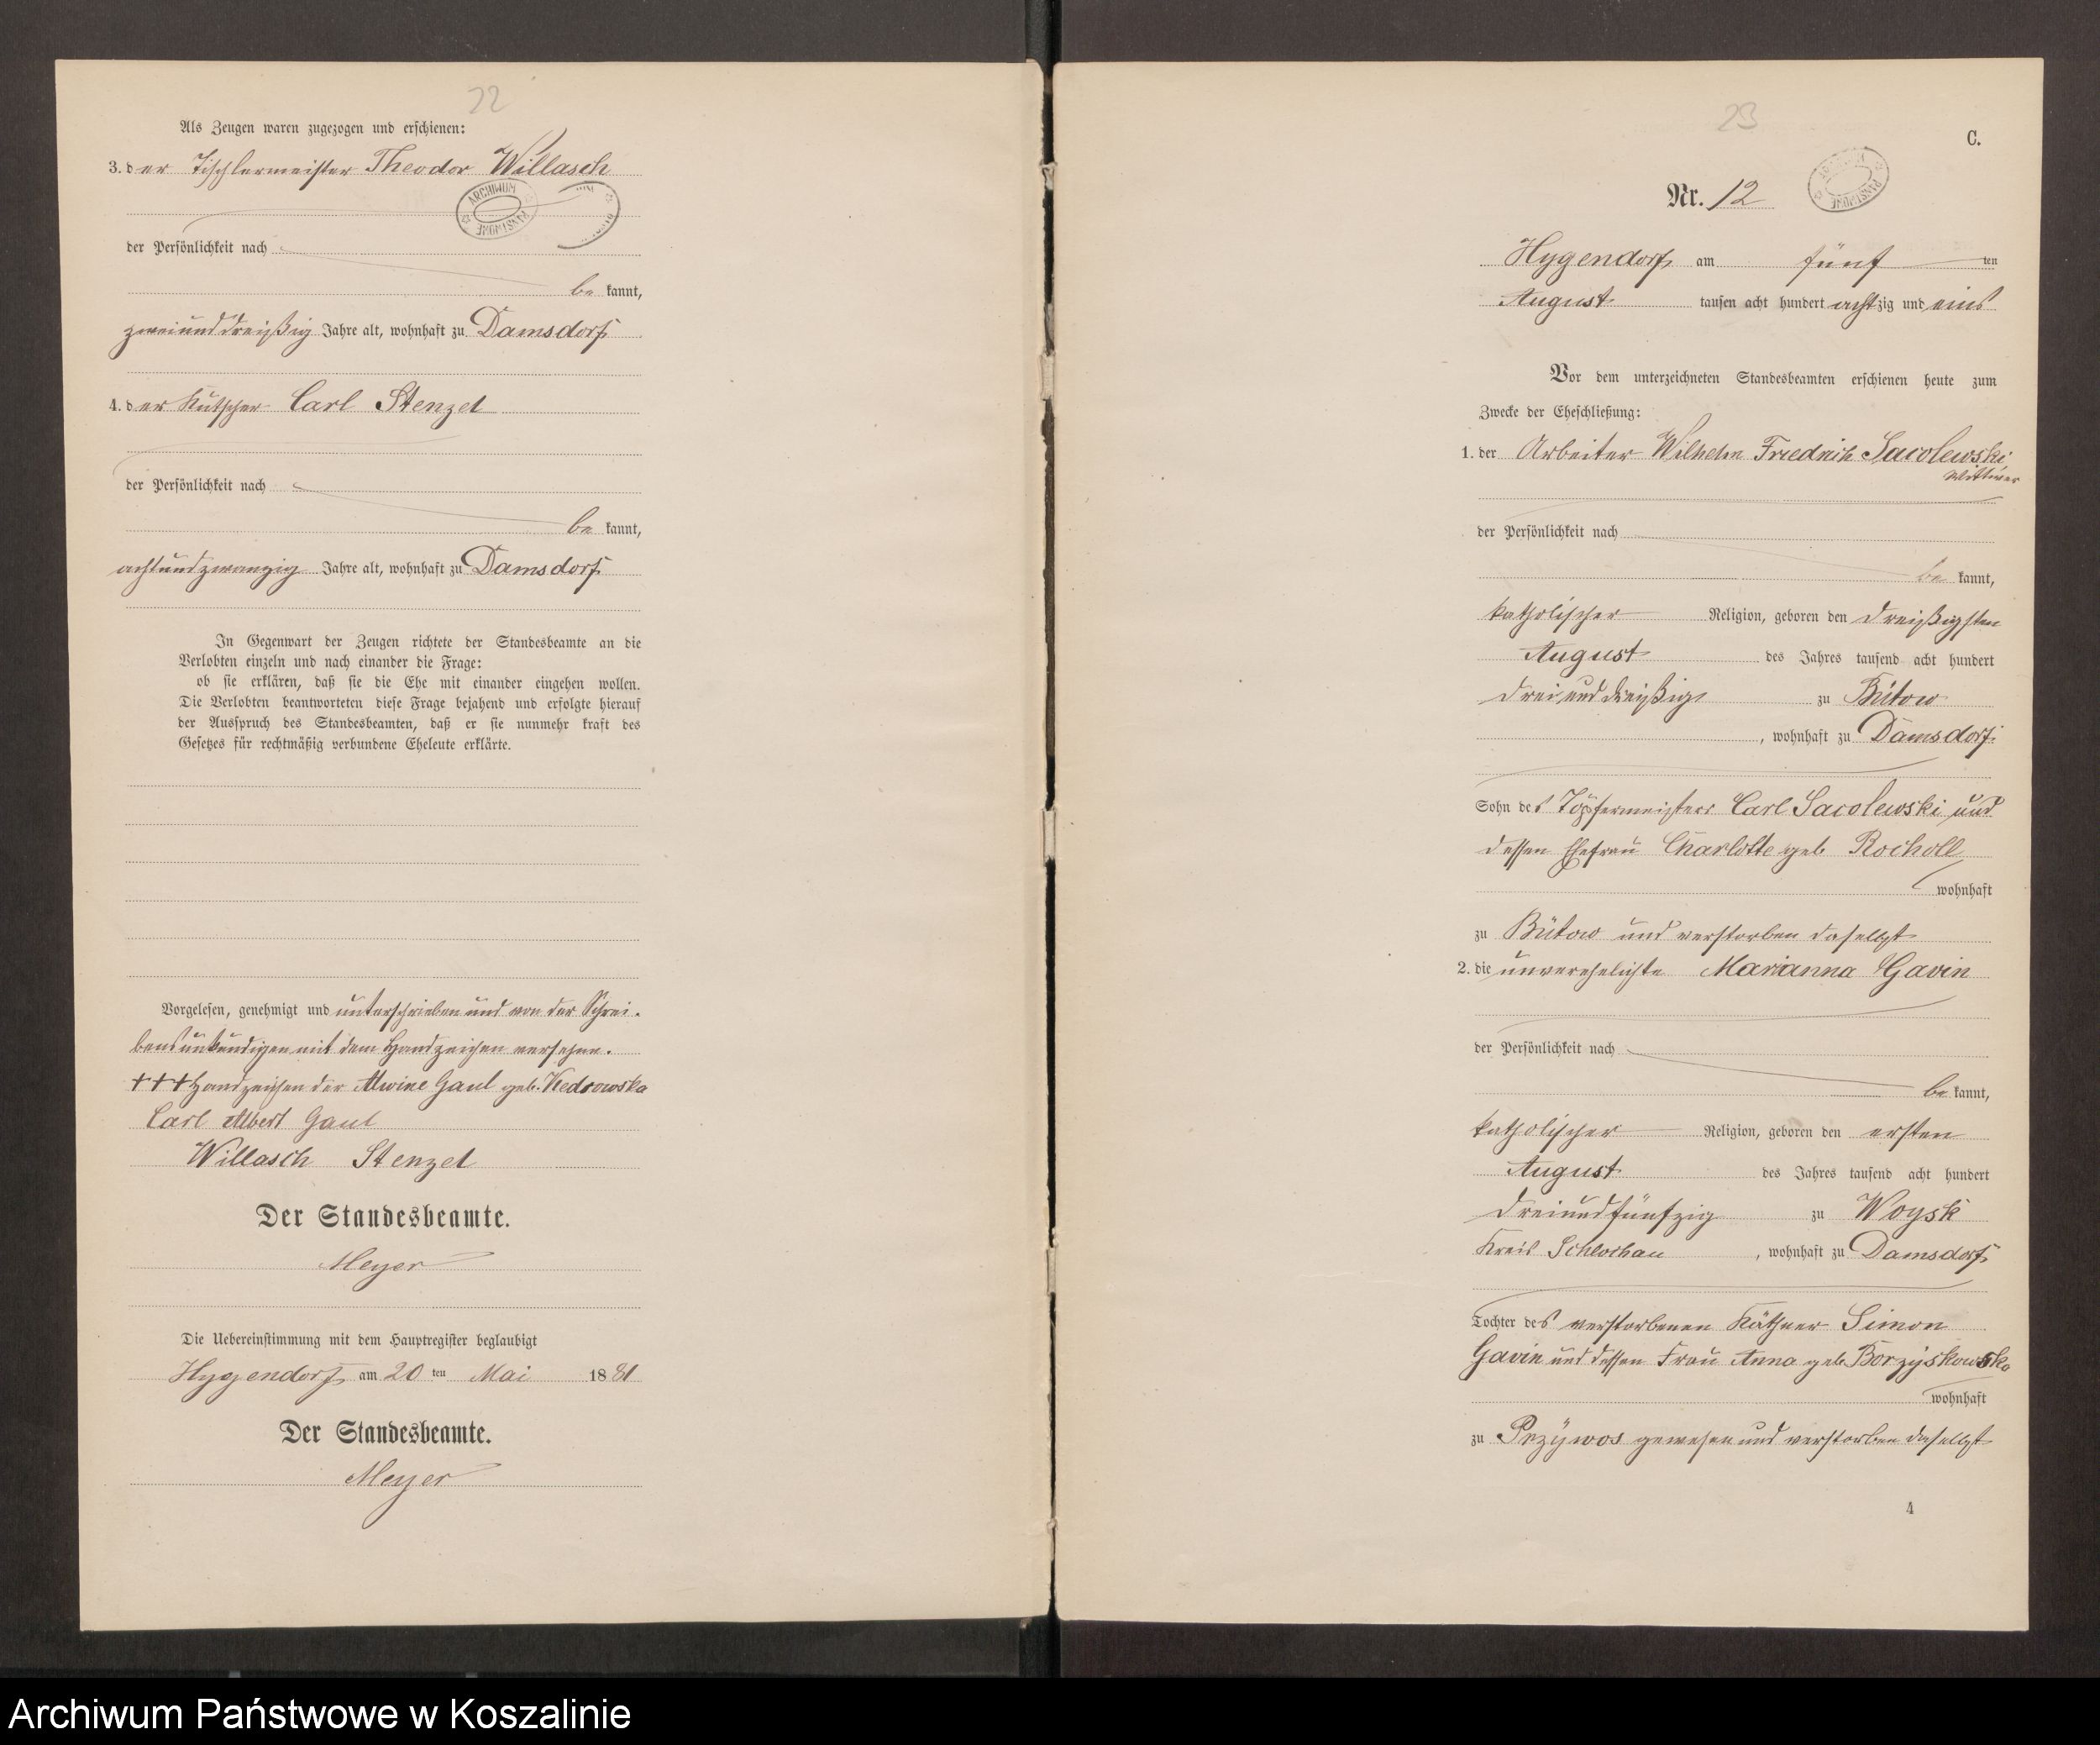 22
Als Zeugen waren zugezogen und erschienen:
3. der Tischlermeister Theodor Willasch
ARCHIWUM PAŃSTWOWE
der Persönlichkeit nach
be kannt,
zweiunddreißig Jahre alt, wohnhaft zu Damsdorf
4. der Kutscher Carl Stenzel
der Persönlichkeit nach
be kannt,
achtundzwanzig Jahre alt, wohnhaft zu Damsdorf
In Gegenwart der Zeugen richtete der Standesbeamte an die
Verlobten einzeln und nach einander die Frage:
ob sie erklären, daß sie die Ehe mit einander eingehen wollen.
Die Verlobten beantworteten diese Frage bejahend und erfolgte hierauf
der Ausspruch des Standesbeamten, daß er sie nunmehr kraft des
Gesetzes für rechtmäßig verbundene Eheleute erklärte.
Vorgelesen, genehmigt und unterschrieben und von der Schrei-
bensunkundigen mit dem Handzeichen versehen.
+++ Handzeichen der Alwine Gaul geb. Kedrowska
Carl Albert Gaul
Willasch Stenzel
Der Standesbeamte.
Meyer
Die Uebereinstimmung mit dem Hauptregister beglaubigt
Hygendorf am 20 ten Mai 1881
Der Standesbeamte.
Meyer
23
C.
Nr. 12
ARCHIWUM PAŃSTWOWE
Hygendorf am fünf ten
August tausen acht hundert achtzig und eins
Vor dem unterzeichneten Standesbeamten erschienen heute zum
Zwecke der Eheschließung:
1. der Arbeiter Wilhelm Friedrich Sacolewski
Wittwer
der Persönlichkeit nach
be kannt,
katholischer Religion, geboren den dreißigsten
August des Jahres tausend acht hundert
dreiunddreißig zu Bütow
, wohnhaft zu Damsdorf
Sohn des Töpfermeisters Carl Sacolewski und
dessen Ehefrau Charlotte geb Rocholl
wohnhaft
zu Bütow und verstorben daselbst
2. die unverehelichte Marianna Gavin
der Persönlichkeit nach
be kannt,
katholischer Religion, geboren den ersten
August des Jahres tausend acht hundert
dreiundfünfzig zu Woysk
Kreis Schlochau, wohnhaft zu Damsdorf
Tochter des verstorbenen Käthner Simon
Gavin und dessen Frau Anna geb. Borzyskowska
wohnhaft
zu Przÿwos gewesen und verstorben daselbst
4
Archiwum Państwowe w Koszalinie